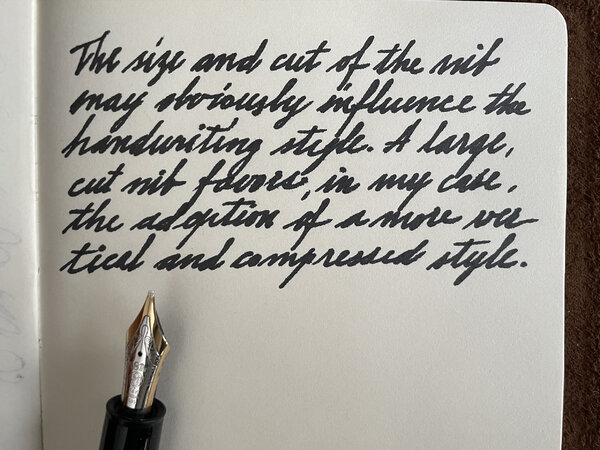 The size and cut of the nib
may obviously influence the
handwriting style. A large,
cut nib favors, in my case,
the adoption of a more ver-
tical and compressed style.